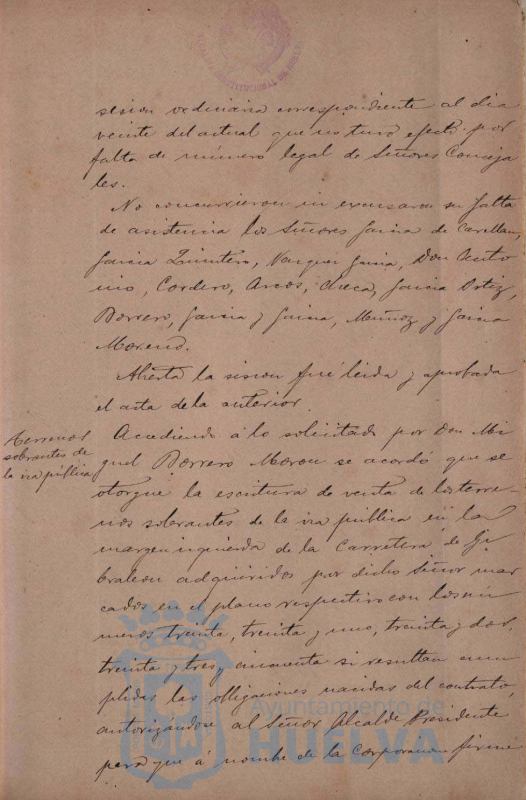 sesion ordinaria correspondiente al dia
veinte del actual que no tuvo efecto por
falta de número legal de Señores Conceja
les.
No concurrieron ni excusaron su falta
de asistencia los Señores Garcia de
Garcia Quintero, Vazquez Garcia, Don
Cordero, Arcos, Checa, Garcia Ortiz,
Borrero, Garcia y Garcia, Muñoz y Garcia
Moreno.
Abierta la sesion fué leida y aprobada
el acta de la anterior.
Terrenos
sobrantes de
la via pública
Accediendo á lo solicitado por Don Mi
guel Borrero Moron se acordó que se
otorgue la escritura de venta de los terre
nos sobrantes de la via pública en la
margen izquierda de la Carretera de Gi
braleon adquiridos por dicho Señor mar
cados en el plano respectivo con los nú
meros treinta, treinta y uno, treinta y dos,
treinta y tres y cincuenta si resultan cum
plidas las obligaciones nacidas del contrato,
autorizandose al Señor Alcalde Presidente
para que á nombre de la Corporacion firme
Ayuntamiento de
HUELVA